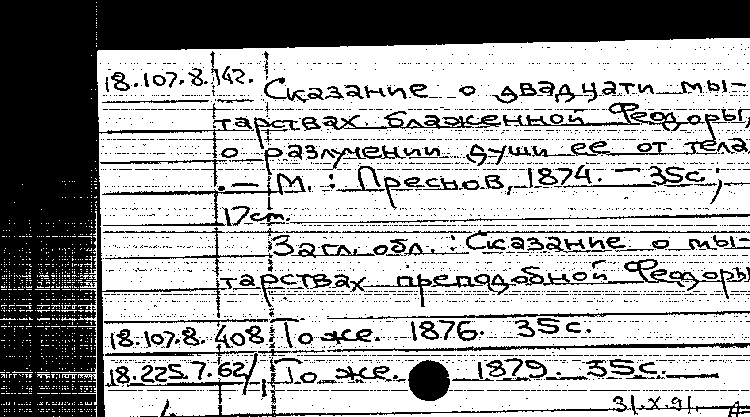 18.107.8.142. Сказание о двадцати мы-
тарствах блаженной Феодоры,
о разлучении души ее от тела
.— М.: Преснов, 1874. — 35с.;
17см.
Загл. обл.: Сказание о мы-
тарствах преподобной Феодоры
18.107.8.408. То же. 1876. 35с.
18.225.7.62/1 То же. 1879. 35с.
31.X.91.